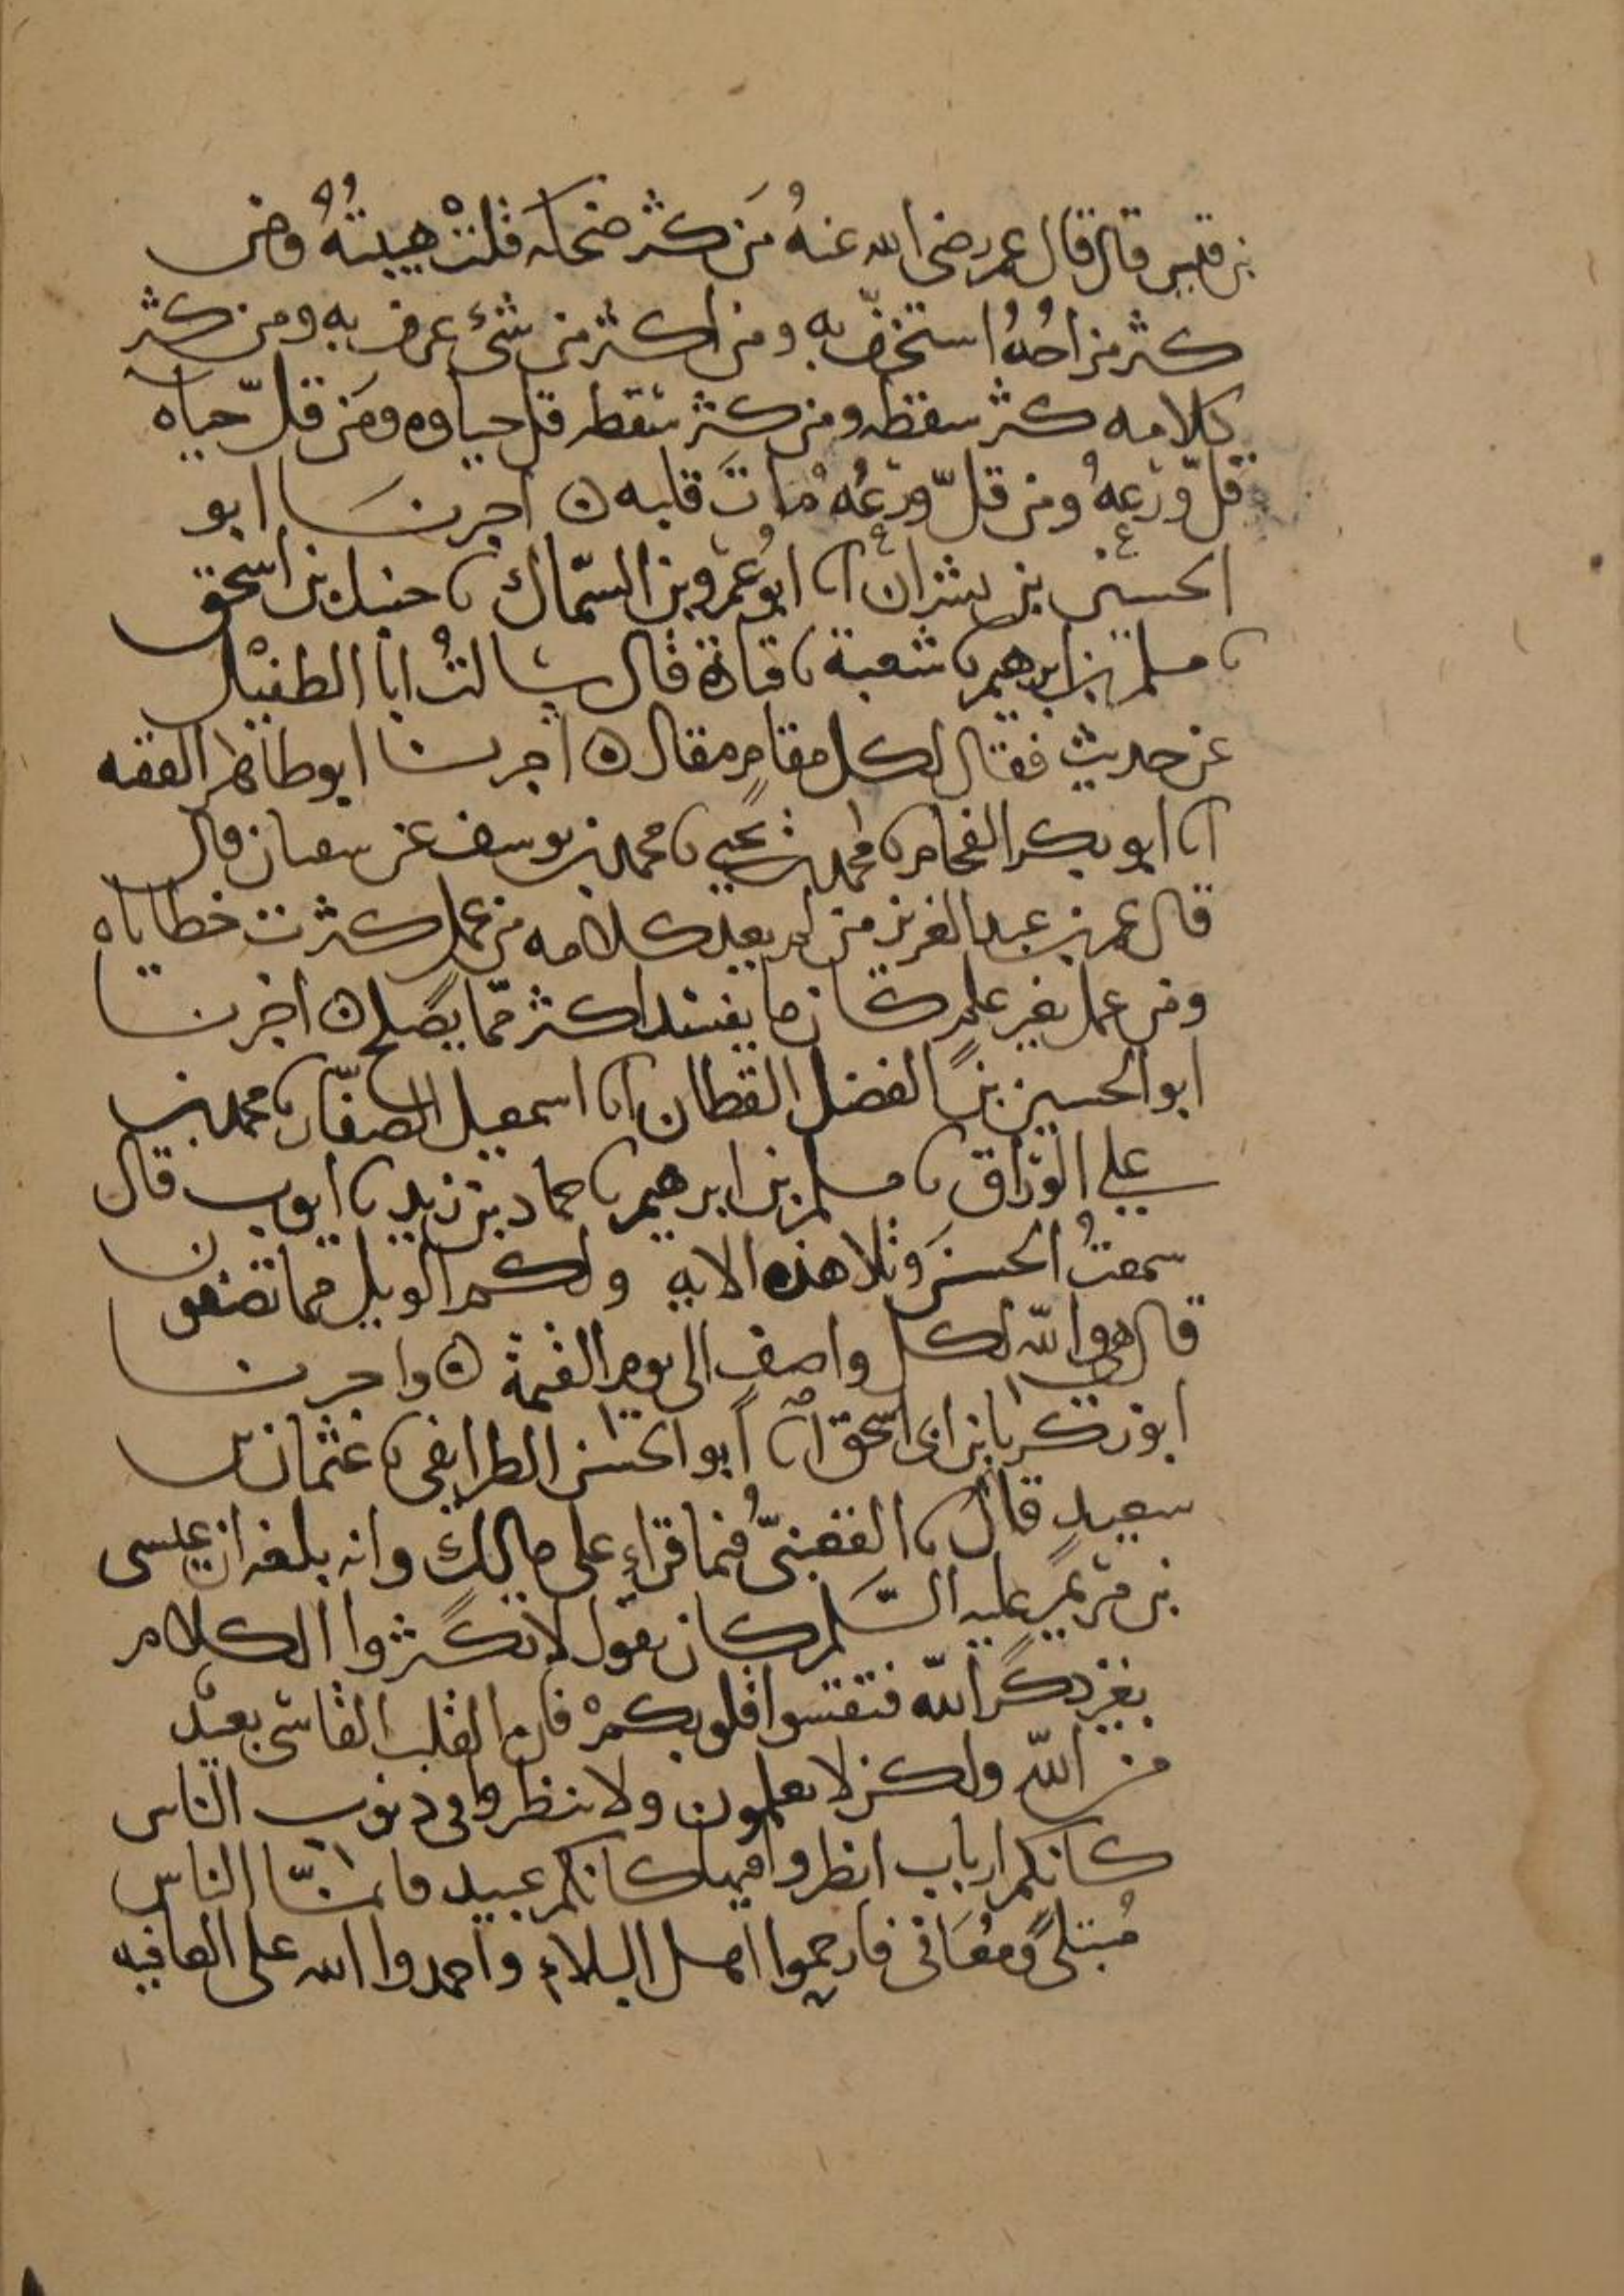 بن قيس قال قال عمر رضى الله عنهُ مَن كثر ضحكه قلّتْ هيبتهُ ومن
كثر مزاحُهُ استخفّ به ومن اكثر من شئ عرف به ومن كثر
كلامه كثر سقطه ومن كثر سقطه قل حياوه ومَن قلّ حياه
قلّ ورعهُ ومن قلّ ورعُهُ ماتَ قلبه ه اخبرنا ابو
الحسين بن بشران انا ابو عَمرو بن السّماك نا حنبل بن اسحق
نا مسلم بن ابرهيم نا شعبة نا قتادة قال سالتُ ابا الطفيْل
عن حديث فقال لكل مقامٍ مقال ه اخبرنا ابو طاهر الفقيه
انا ابو بكر الفحام نا محمد بن يحيى نا محمد بن يوسف عن سفيان قال
قال عمر بن عبد العزيز من لم يعد كلامه من عمله كثرت خطاياه
ومن عمل بغير علم كان ما يفسد اكثر ممّا يصلح ه اخبرنا
ابو الحسين بن الفضل القطان انا اسمعيل الصفّار نا محمد بن
علي الورّاق نا مسلم بن ابرهيم نا حماد بن زيد نا ايوب قال
سمعتُ الحسنَ وتلا هذه الايه ولكم الويل مما تصفون
قال هي والله لكل واصفٍ الى يوم القيمة ه واخبرنا
ابو زكريا بن ابى اسحق انا ابو الحسن الطرايفى نا عثمان بن
سعيدٍ قال نا القعنبىّ فيما قراءٍ على مالكٍ وانه بلغه ان عيسى
بن مريم عليه السَّلم كان يقول لا تكثروا الكلام
بغير ذكر الله فتقسوا قلوبكمْ فان القلب القاسى بعيد
من الله ولكن لا تعلمون ولا تنظروا فى ذنوب الناس
كانكم ارباب انظروا فيها كانكم عبيد فانمّا الناس
مُبتلًى ومُعَافى فارحموا اهل البلاء واحمدوا الله على العافيه